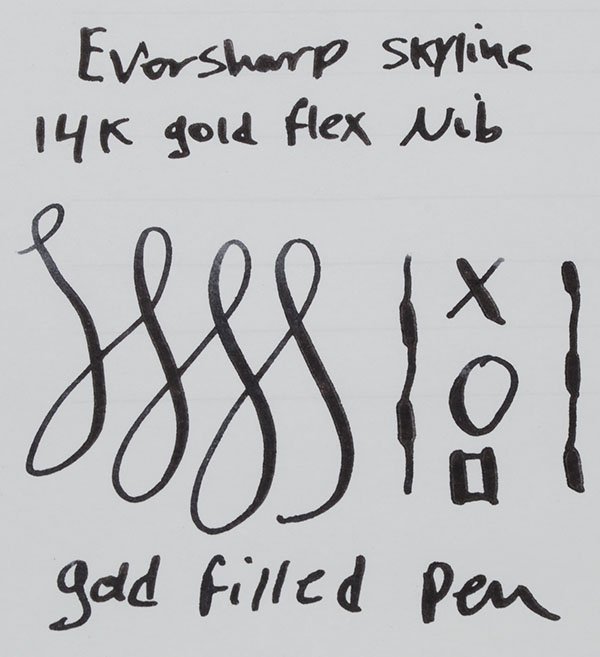 Evorsharp skyline
14K gold flex Nib
gold filled pen